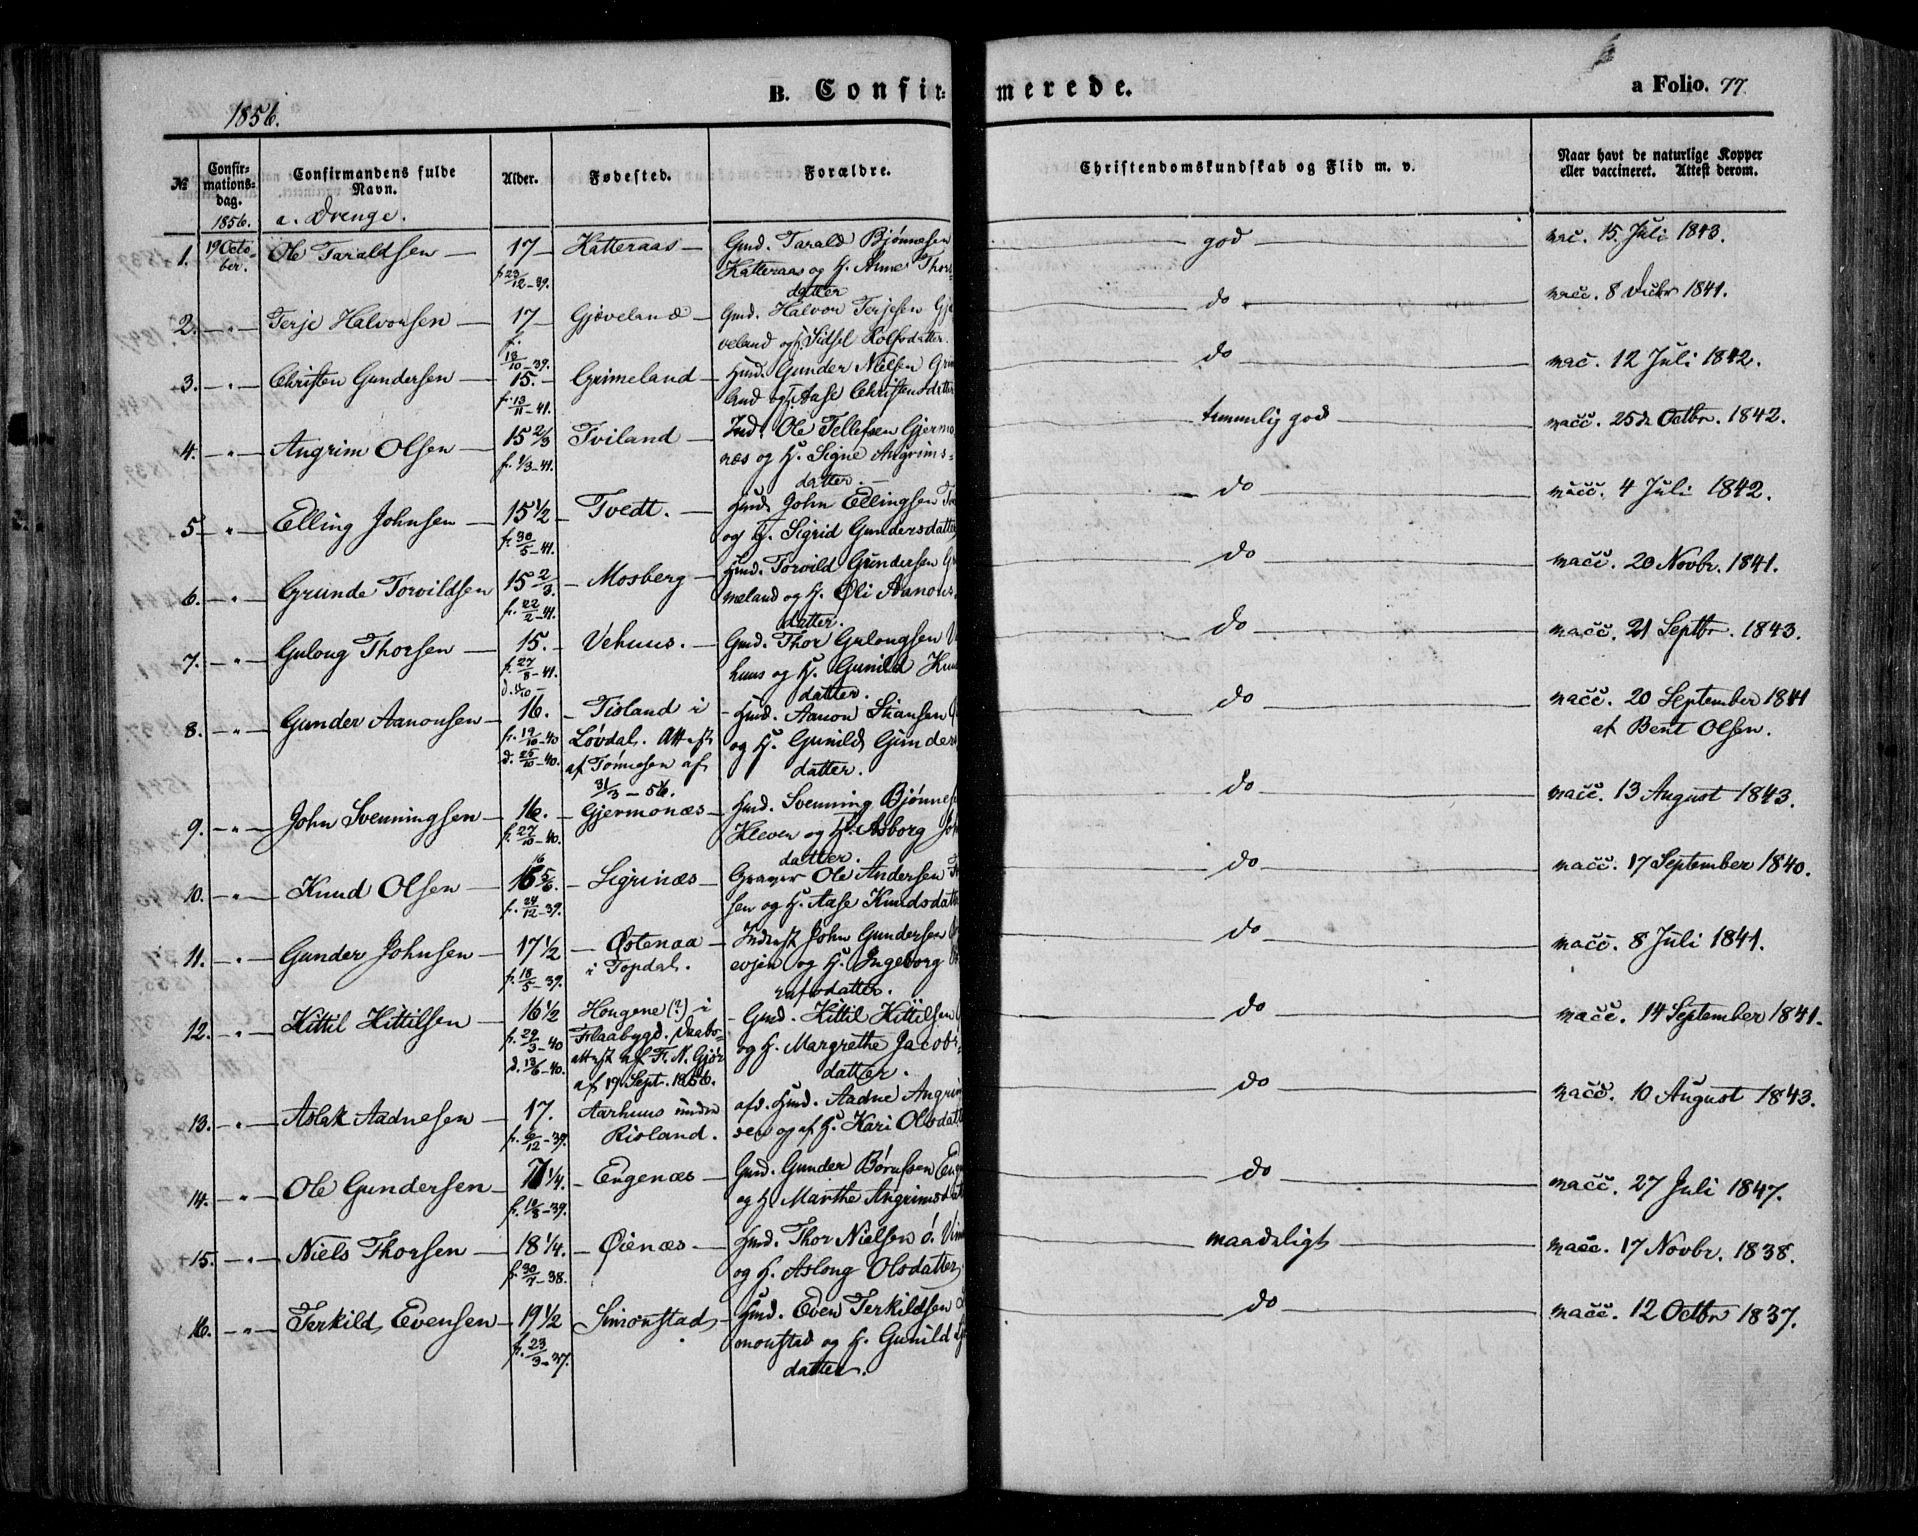 1856.
B. Confir- merede.
a Folio. 77
№
Confir-
mations-
dag.
1856.
Confirmandens fulde
Navn.
a. Drenge.
Alder.
Fødested.
Forældre.
Christendomskundskab og Flid m. v.
Naar havt de naturlige Kopper
eller vaccineret. Attest derom.
1. 19 Octo- Ole Taraldsen — 17 — Katteraas — Gmd. Tarald Bjønnesen — god — vac. 15. Juli 1843.
ber. f. 23/12-39. Katteraas og H. Anne Thors
datter
2. -"- Terje Halvorsen — 17 — Gjøveland — Gmd. Halvor Terjesen Gjø — do — vacc. 8 Decbr 1841.
f. 18/10-39. veland og H. Sidsel Rolfsdatter.
3. -"- Christen Gundersen — 15. — Grimeland — Hmd. Gunder Nielsen Grim — do — vac. 12 Juli 1842.
f. 13/11-41. land og H. Aase Christensdatter
4. -"- Angrim Olsen — 15 2/3 — Tviland — Ind. Ole Tellefsen Gjermo — temmelig god — vacc. 25de Octbr. 1842.
f. 1/3-41. næs og H. Signe Angrims-
datter. —
5 — " Elling Johnsen — 15 1/2 — Tvedt. — Hmd. John Ellingsen Tv — do — vacc. 4 Juli 1842.
f. 30/5-41. og H. Sigrid Gundersdatter
6. -"- Grunde Torvildsen 15 2/3 — Mosberg — Hmd. Torvild Gundersen Gr — do — vacc. 20 Novbr. 1841.
f. 22/2-41. meland og H. Øli Aanons-
datter.
7. -"- Gulong Thorsen — 15. — Vehuus. — Gmd. Thor Gulongsen Ve — do — vacc. 21 Septbr. 1843.
f. 27/8-41. huus og H. Gunild Knu
d. 11/10 — datter.
8. -"- Gunder Aanonsen — 16. — Tisland i — Hmd. Aanon Stiansen — do — vacc. 20 September 1841
f. 19/10-40 Løvdal. Attest og H. Gunild Gunders af Bent Olsen.
d. 25/10-40. af Tønnesen af datter.
31/3-56.
9. -"- John Svenningsen — 16. — Gjermonæs — Hmd. Svenning Bjønnes — do — vacc. 13 August 1843.
f. 27/10-40. Kleven og H. Asborg Joh
datter.
10. -"- Knud Olsen — 16 5/6. — Sigrinæs — Graver Ole Andersen — do — vacc. 17 September 1840.
f. 24/12-39. sen og H. Aase Knudsdatter
11. -"- Gunder Johnsen — 17 1/2 — Østenaa — Inderst John Gundersen — do — vacc. 8 Juli 1841.
f. 18/5-39. i Topdal. evjen og H. Ingeborg
datter.
12. -"- Kittil Kittilsen — 16 1/2 Hougene (?) i — Gmd. Kittil Kittilsen — do — vacc. 14 September 1841.
f. 29/3-40 Flaabygd. Daabs- og H. Margrethe Jacobs-
d. 13/6-40. attest af F. N. Gjør datter.
af 19 Sept. 1856.
13. -"- Aslak Aadnesen — 17. Aarhuus under afd. Hmd. Aadne Angrim — do — vacc. 10 August 1843.
f. 6/12-39. Risland. sen og af H. Kari Olsdatter
14. -"- Ole Gundersen — 17 1/4. — Engenæs — Gmd. Gunder Børufsen Enge — do — vacc. 27 Juli 1847.
f. 18/8-39. og H. Marthe Angrimsdat
15. -"- Niels Thorsen — 18 1/4. — Øienæs — Hmd. Thor Nielsen ø. Vim — maadeligt — vacc. 17 Novbr. 1838.
f. 30/7-38. og H. Aslong Olsdatter
16. -"- Terkild Evensen — 19 1/2 Simonstad — Hmd. Even Terkildsen — do — vacc. 12 Octbr 1837.
f. 23/3-37. monstad og H. Gunild
datter.